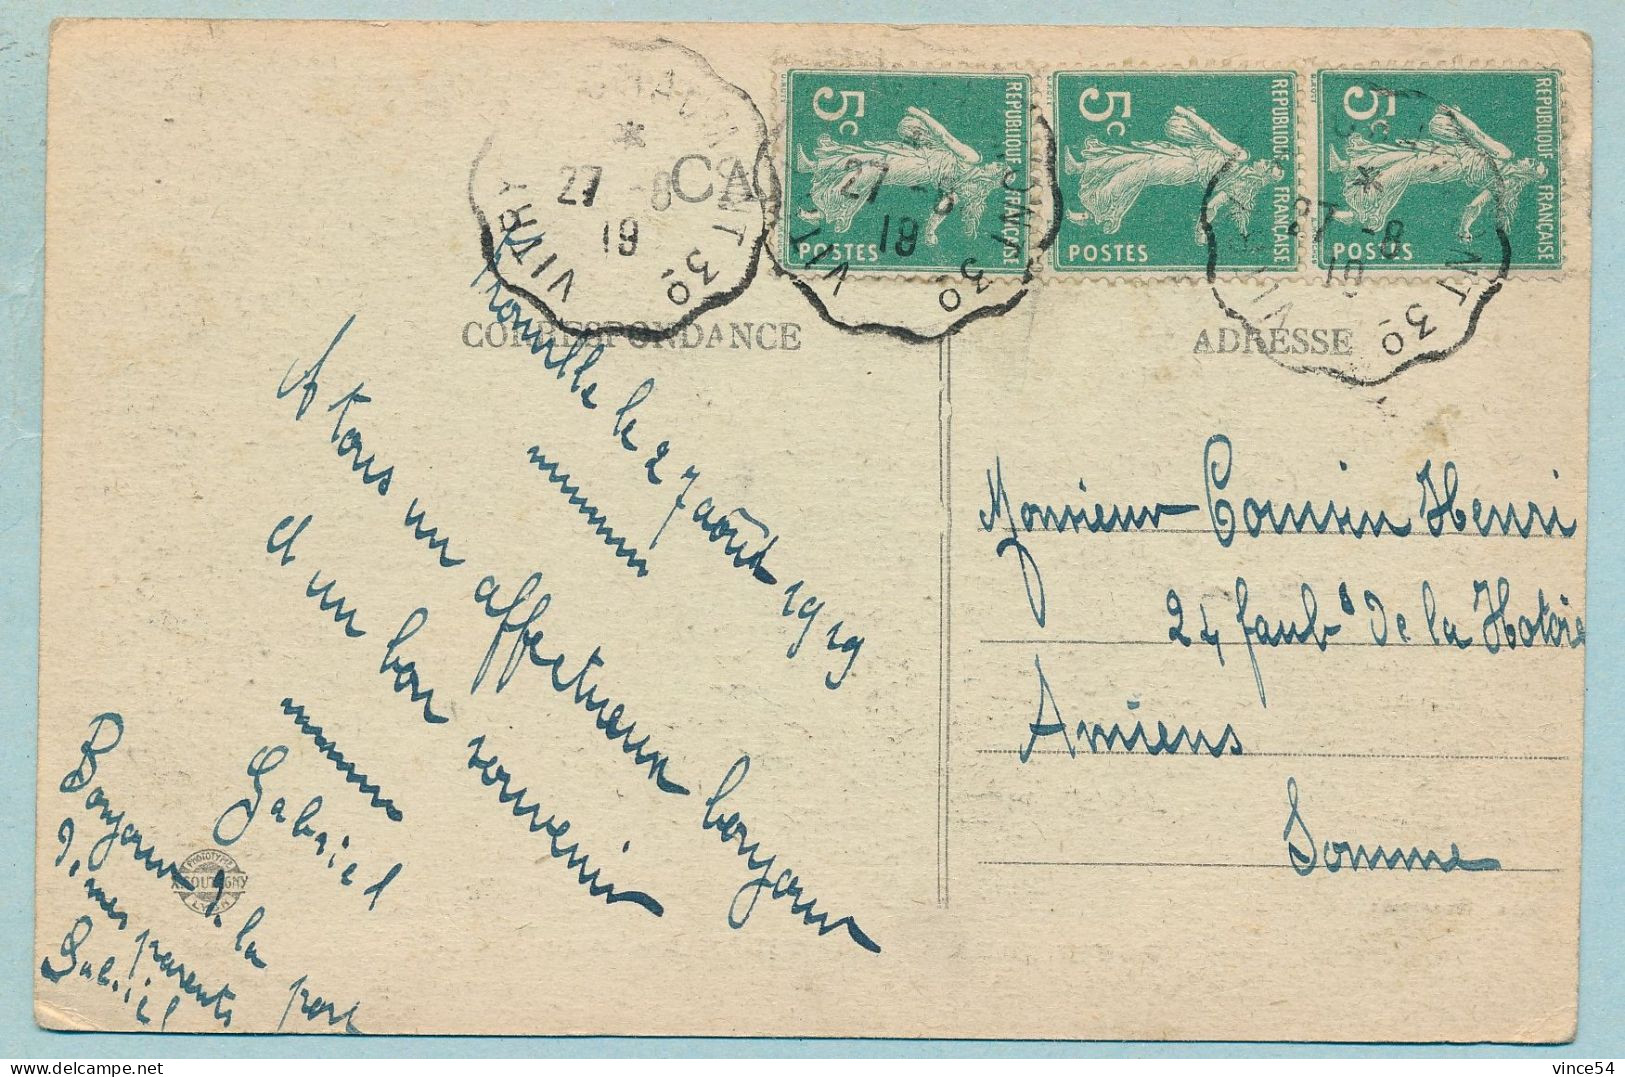 CHAUMONT
VITRY
30
27 -8
19
CA
5c
REPUBLIQUE FRANÇAISE
POSTES
5c
REPUBLIQUE FRANÇAISE
POSTES
5c
REPUBLIQUE FRANÇAISE
POSTES
27 -8
19
VIT
30
27 -8
19
30
CORRESPONDANCE
ADRESSE
le 27 août 1919
A tous un affectueux bonjour
et un bon souvenir
Gabriel
Bonjour de la part
de mes parents
Gabriel
PHOTOTYPIE
Monsieur Cousin Henri
24 faubg de la Hotoie
Amiens
Somme
vince54